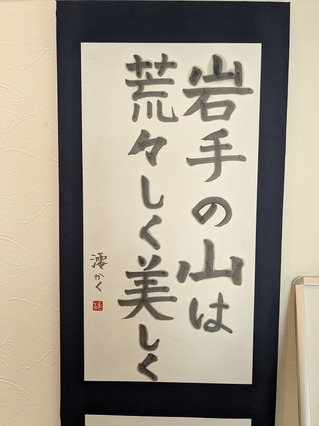 岩手の山は
荒々しく美しく
澪かく